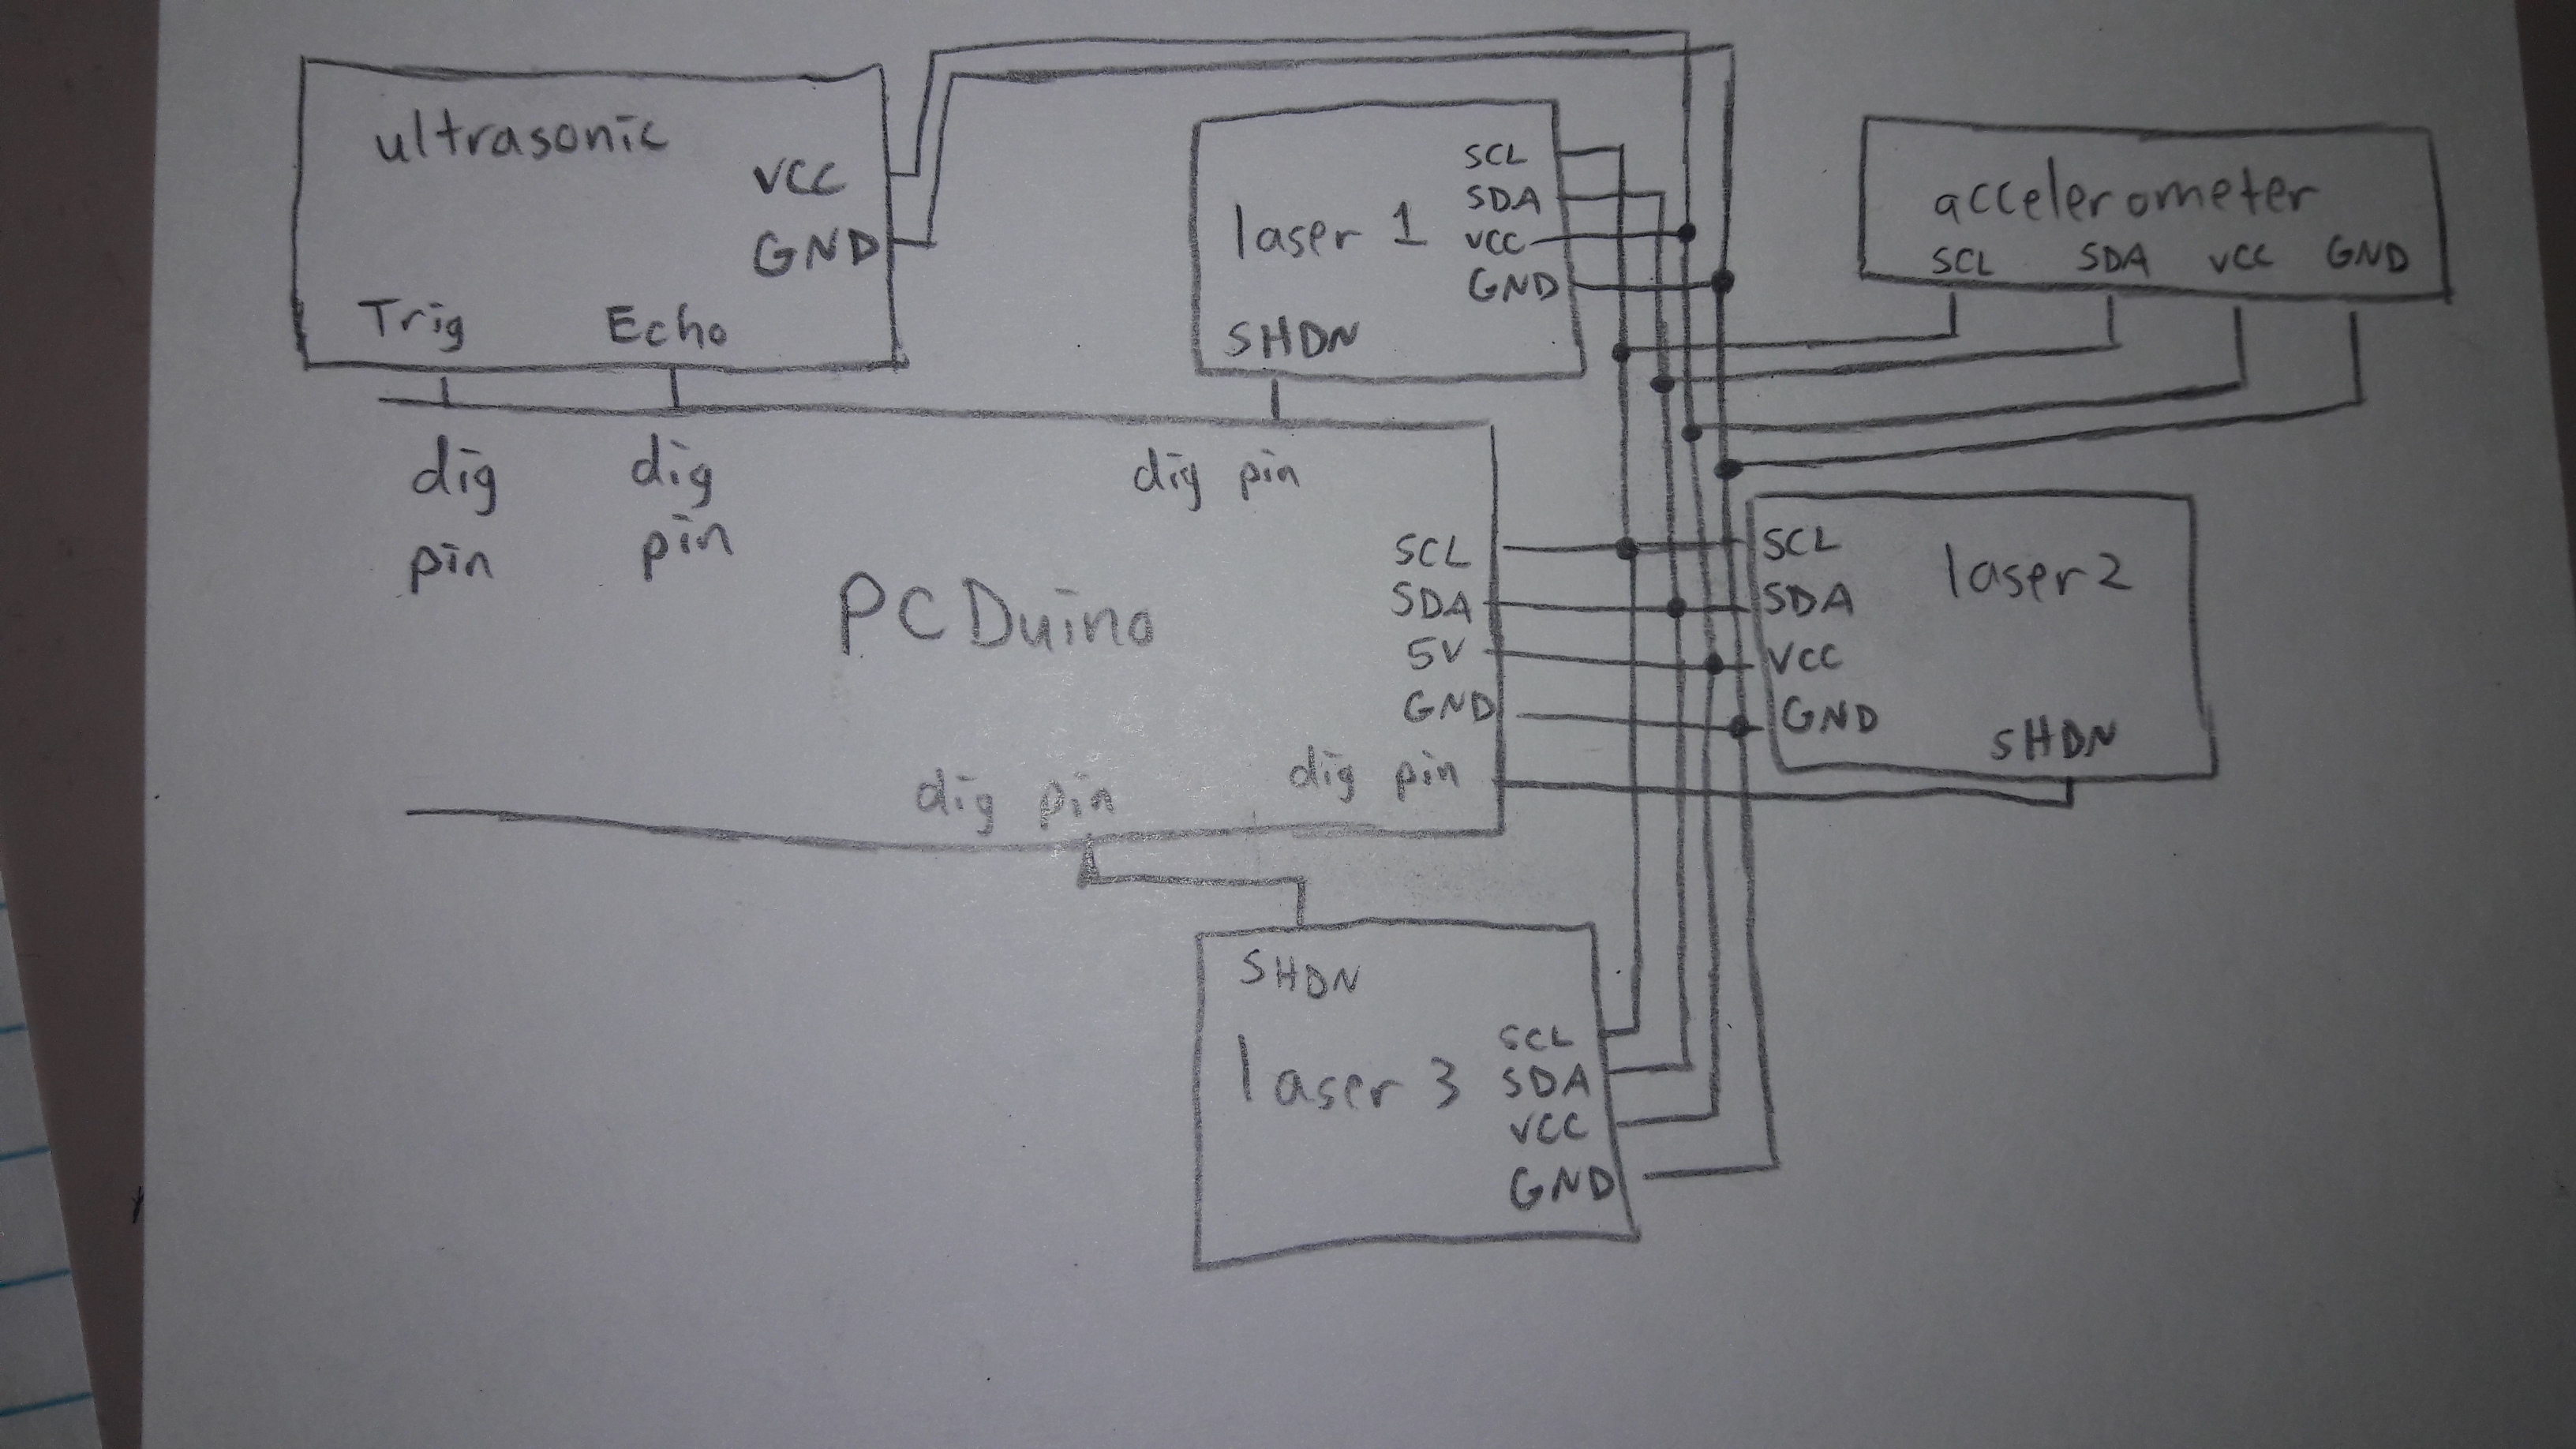 ultrasonic
VCC
GND
Trig
Echo
SCL
SDA
VCC
GND
laser 1
SHDN
accelerometer
SCL SDA VCC GND
dig
pin
dig
pin
dig pin
PCDuino
SCL
SDA
5V
GND
dig pin
dig pin
SCL
SDA
VCC
GND
laser 2
SHDN
SHDN
laser 3
SCL
SDA
VCC
GND